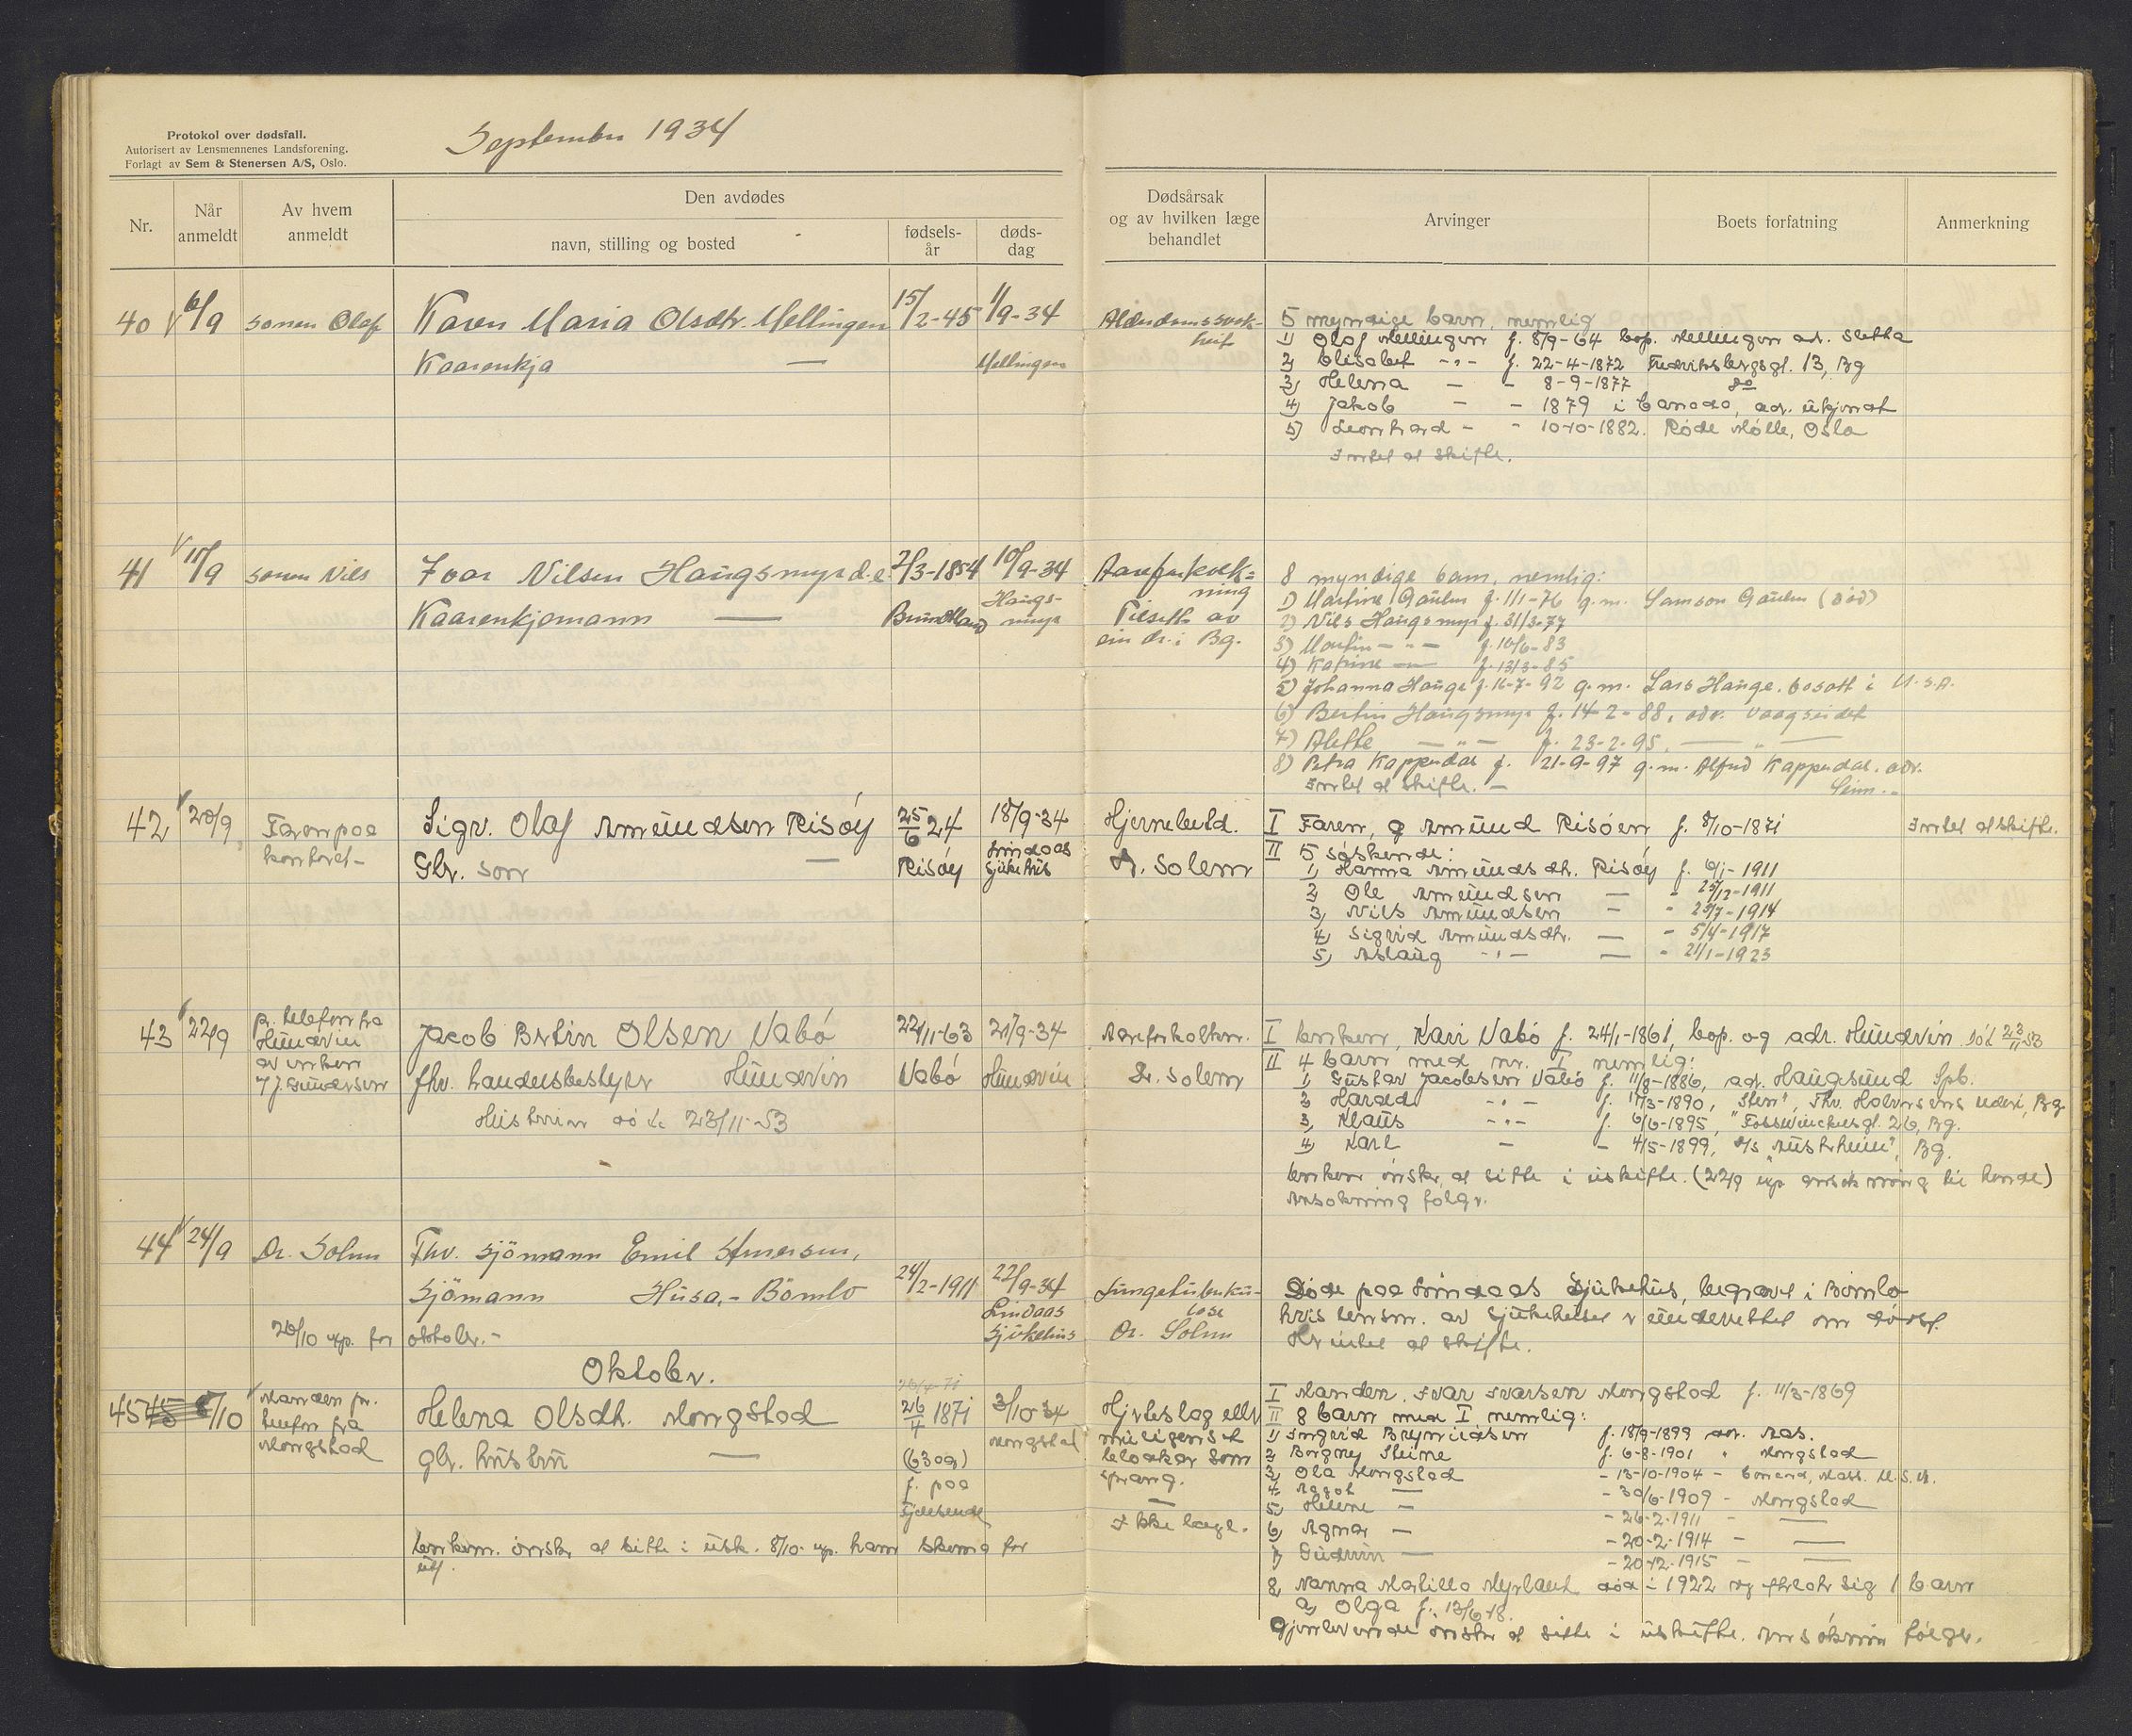 Protokol over dødsfall.
Autorisert av Lensmennenes Landsforening.
Forlagt av Sem & Stenersen A/S, Oslo.
September 1934
Nr.
Når anmeldt
Av hvem anmeldt
Den avdødes
navn, stilling og bosted
fødsels-
år
døds-
dag
Dødsårsak
og av hvilken læge
behandlet
Arvinger
Boets forfatning
Anmerkning
40 6/9 sonen Olaf Karen Maria Olsdtr. Mellingen 15/2-45 1/9-34
Kaarenkja — Mellingen
Alderdomssvak-
heit
5 myndige barn, nemlig
1) Olaf Mellingen f. 8/9-64 bop. Mellingen adr. Sletta
2) Elisabet -"- f. 22-4-1872 Fredriksbergsgt. 13, Bg
3) Helena - - 8-9-1877 do
4) Jakob - - 1879 i Canada, adr. ukjendt
5) Leonhard - - 10-10-1882. Røde Mølle, Oslo
Intet at skifte.
41 11/9 sonen Nils Ivar Nilsen Haugsmyr d.e. 2/3-1854 10/9-34
Kaarenkjemann — Haugs-
myr
Aareforkalk=
ning
Tilsett av
ein dr. i Bg.
8 myndige barn, nemlig:
1) Martine Gaulen f. 1/1-76 g.m. Samson Gaulen (død)
2) Nils Haugsmyr f. 31/3-77
3) Martin -"- f. 10/6-83
4) Katrine — f. 13/3-85
5) Johanna Hauge f. 16-7-92 g.m. Lars Hauge, bosatt i U.S.A.
6) Bertin Haugsmyr f. 14-2-88, adr. Vaagseidet
7) Alette -"- f. 23-2-95, — " —
8) Petra Kappendal f. 21-9-97 g.m. Alfred Kappendal. adr.
Seim.-
Intet at skifte. -
42 20/9 Faren paa Sigv. Olaf Amundsen Risøy 25/6 24 18/9-34
kontoret- Gbr. son — Risøy Lindaas
sjukehus
Hjernebetd.
Dr. Solem
I Faren, g Amund Risøen f. 8/10-1871 Intet at skifte.
II 5 søskende:
1) Hanna Amundsdtr. Risøy f. 6/1-1911
2) Ole Amundsen — - 25/12-1911
3) Nils Amundsen - - 23/7-1914
4) Sigrid Amundsdtr. — - 5/4-1917
5) Aslaug -"- — - 21/1-1923
43 22/9 pr. telefon fra
Hundvin
av enken
v/ J. Gundersen
Jacob Bertin Olsen Vabø 22/11-63 21/9-34
fhv. handelsbestyrer Hundvin Vabø Hundvin
Hustruen død 23/11-53
Aareforkalkn.
Dr. Solem
I Enken, Kari Vabø f. 24/1-1861, bop. og adr. Hundvin død 23/11 53
II 4 barn med nr. I nemlig:
1) Gustav Jacobsen Vabø f. 11/8-1886, adr. Haugesund Spb.
2) Harald -"- f. 11/3-1890, fhv. Halvorsens Bg
3) Klaus -"- f. 6/6-1895, "Fosswinckelsgt. 26, Bg.
4) Karl - - 4/5-1899, D/S "Austrheim", Bg.
Enken ønsker at sitte i uskifte. (22/9 exp ansøkning til hende)
Ansøkning følger.
44 24/9 Dr. Solem Fhv. sjömann Emil
Sjömann Husa,- Bömlo 24/2-1911 22/9-34
Lindaas
Sjukehus
Lungetuberku-
lose
Dr. Solem
Døde paa Lindaas Sjukehus, begravet i Bömlo
hvis lensm. av sjukehuset er underrettet om dødsf.
Her intet at skifte.
20/10 exp. for oktober.-
Oktober.
45 45 8/10 Manden pr.
telefon fra
Mongstad
Helena Olsdtr. Mongstad 26/4 1871 3/10-34
gbr. hustru — Mongstad
(63 aar)
f. paa
Hjerteslag eller
muligens et
blodkar som
sprang.
—
Ikke læge.
I Manden, Ivar Ivarsen Mongstad f. 11/3-1869
II 8 barn med I nemlig:
1) Ingrid Brynildsen f. 18/9-1899 adr. Aas.
2) Borgny Steine f. 6-8-1901 " Mongstad
3) Ola Mongstad - 13-10-1904 - Mass. U.S.A.
4) Agot — - 30/6-1909 - Mongstad
5) Helene - - 26-2-1911 - —
6) Agnar - - 20-2-1914 - —
7) Gudrun — - 20-12-1915 - —
8) Nanna Matilla Myrtaut død i 1922 og efterlot sig 1 barn
a) Olga f. 13/6-18.
Gjenlevende ønsker at sitte i uskifte. Ansøknin følger.
Enkem. ønsker at sitte i usk. 8/10 exp. ham skema for
utf.